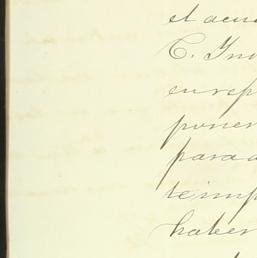 el acu
C. Ins
en rep
poner
para a
temp
haber